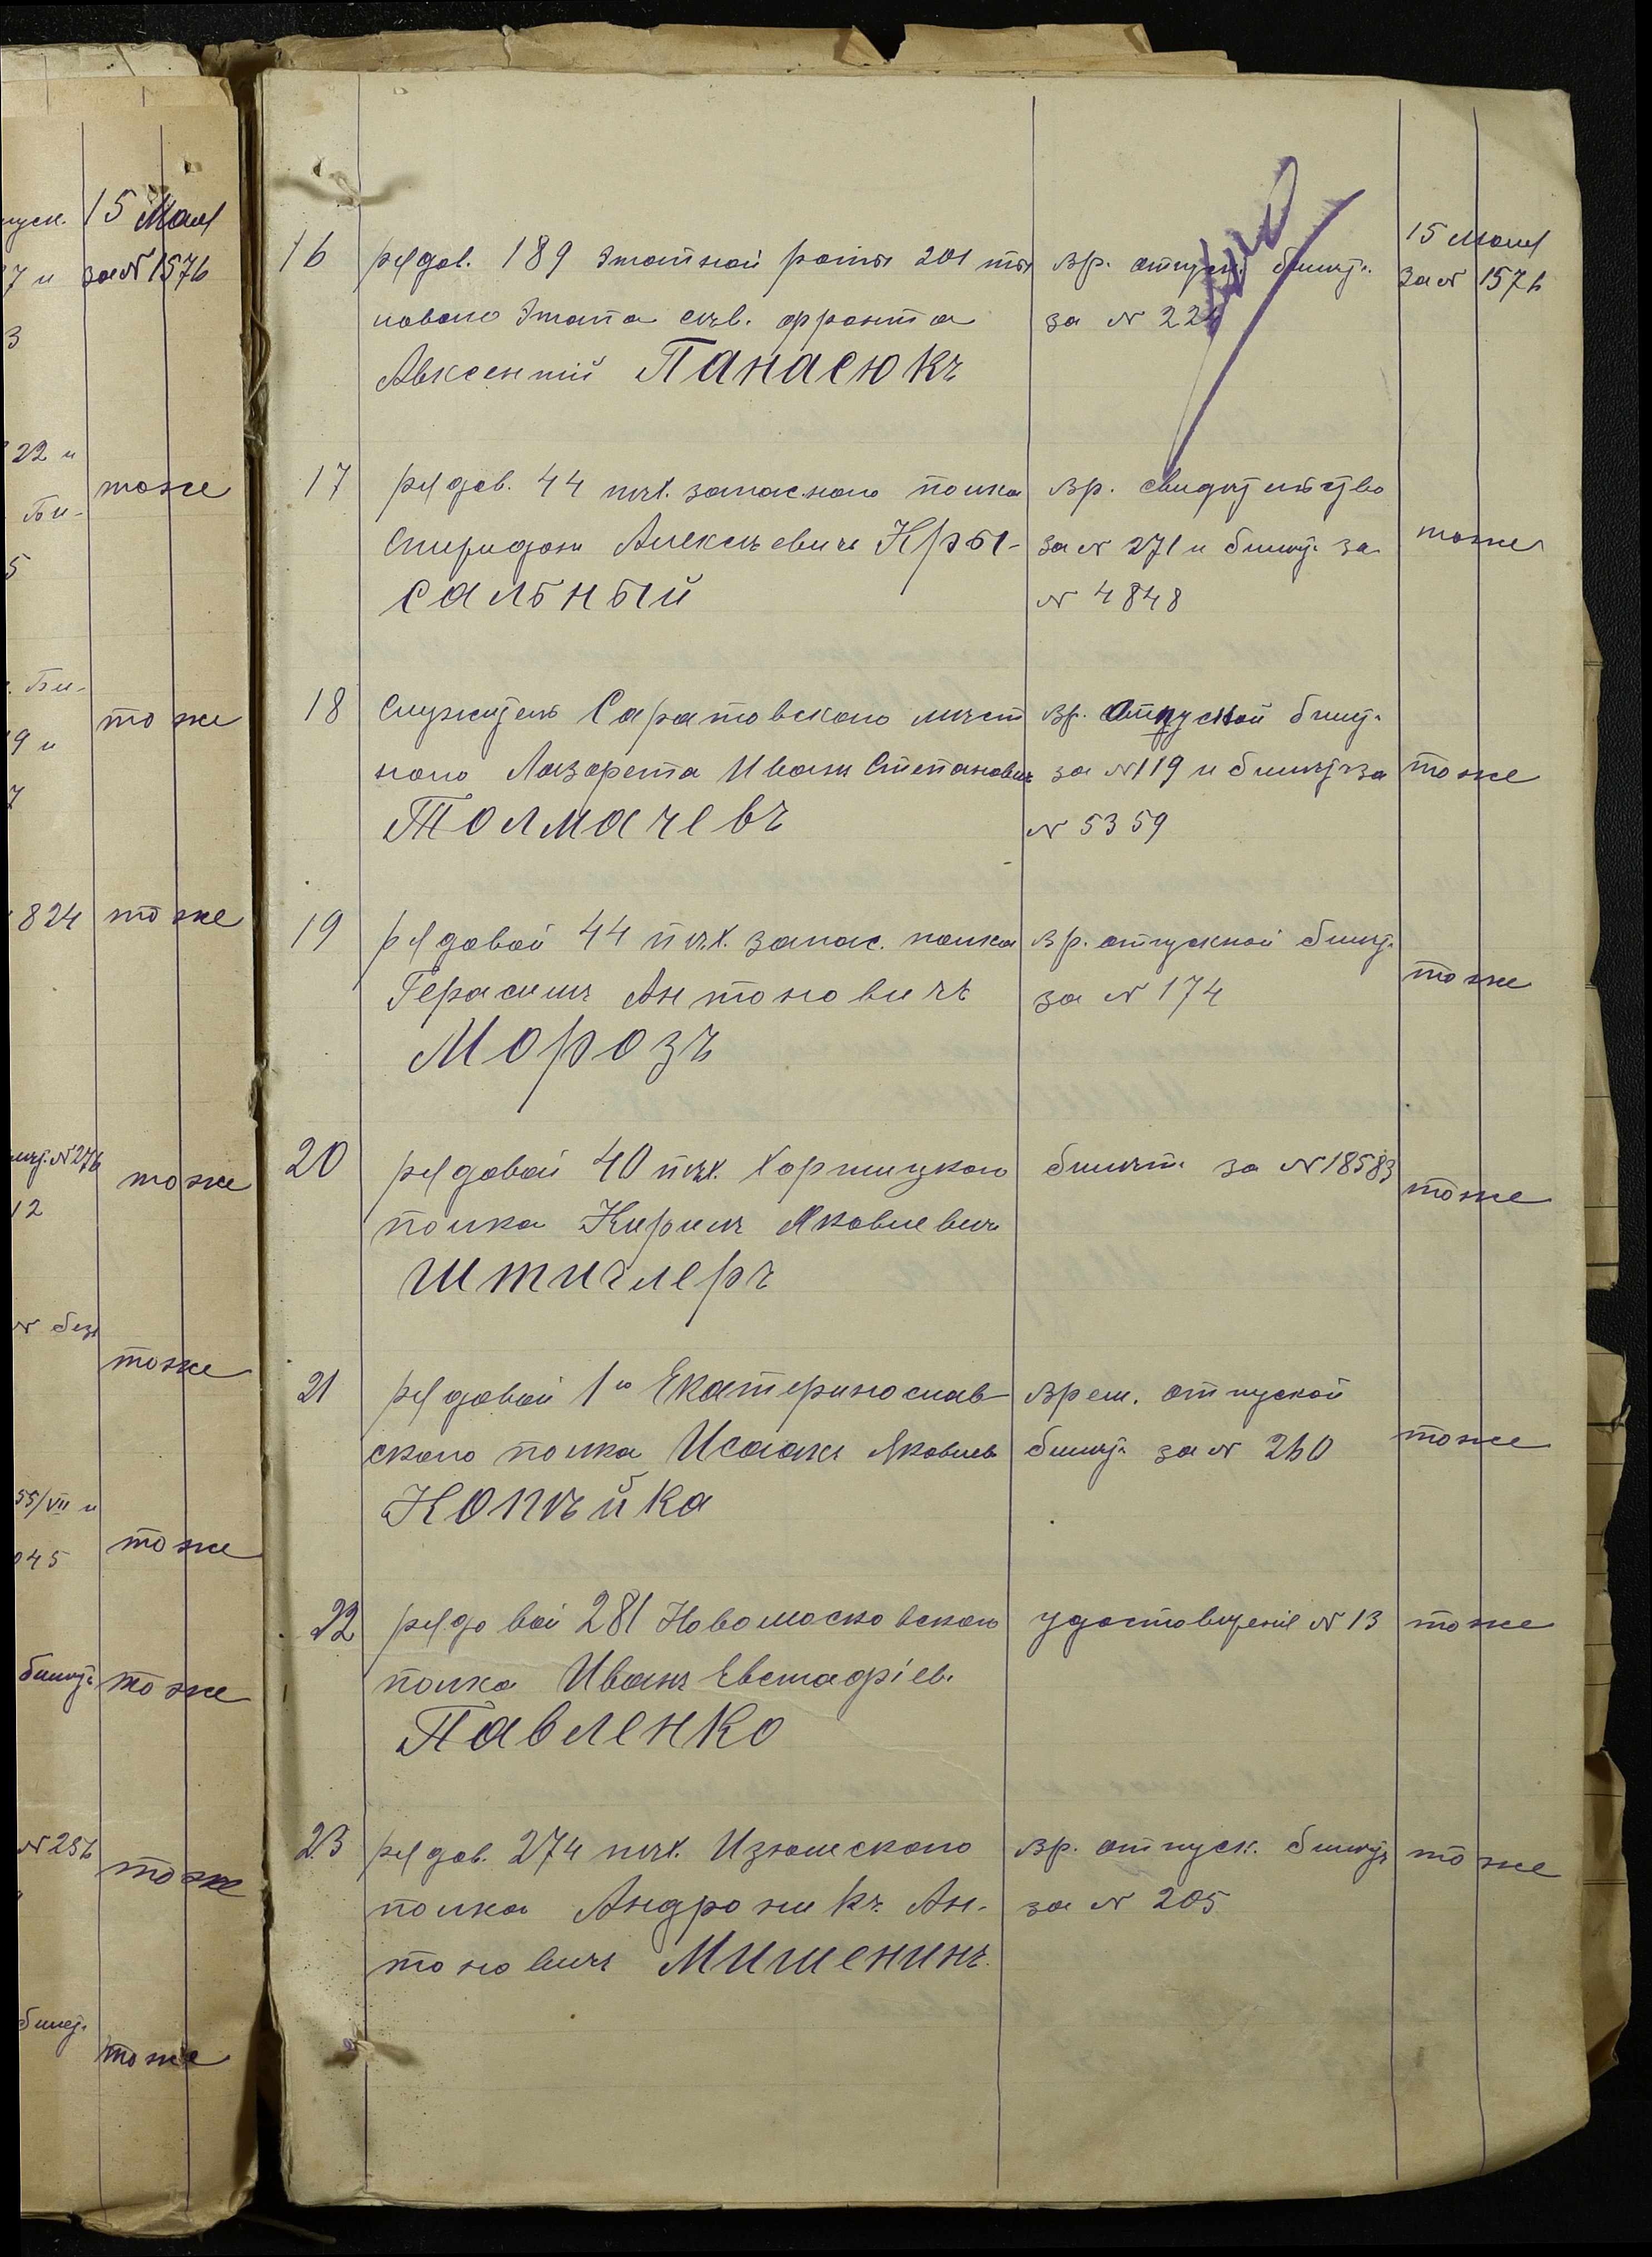 15 Мая
за № 1576
22 и
тоже
Би-
5
Би-
тоже
9 и
7
824 тоже
№ 276
тоже
12
№ без
тоже
55/VII и
045 тоже
билет тоже
№ 256
тоже
билет
тоже
16 рядов. 189 Этапной роты 201 ты вр. отпуск. билет 15 Мая
новаго Этапа сѣв. фронта за № 224 за № 1576
Авксентій Панасюкъ
17 рядов. 44 пѣх. запаснаго полка вр. свидетельство
Спиридон Алексѣевичъ Кры- за № 271 и билет за тоже
сальный № 4848
18 Служитель Саратовскаго мѣст вр. отпускной билет
наго Лазарета Иванъ Степанович за № 119 и билет за тоже
Толмачевъ № 5359
19 рядовой 44 пѣх. запас. полка вр. отпускной билет
Герасимъ Антоновичъ за № 174 тоже
Морозъ
20 рядовой 40 пѣх. билет за № 18583 тоже
полка Кирилъ Яковлевич
Штиглеръ
21 рядовой 1го Екатеринослав Врем. отпуской
скаго полка Исаакъ Яковлев билет за № 260 тоже
Копѣйка
22 рядовой 281 Новомосковскаго удостоверение № 13 тоже
полка Иванъ Евстафіев.
Павленко
23 рядов. 274 пѣх. Изюмскаго вр. отпуск. билет тоже
полка Андроникъ Ан- за № 205
тоновичъ Мишенинъ.